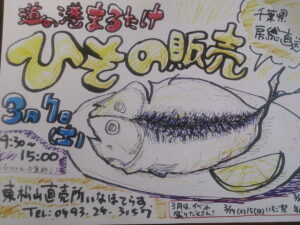 道の港まるたけ
ひもの販売
千葉県
房総直送
3月7日(土)
9:30~
15:00
東松山直売所いなほてらす
TEL: 0493-24-3157
3月は イベント
盛りだくさん!
3/14(土)15(日)いちご祭